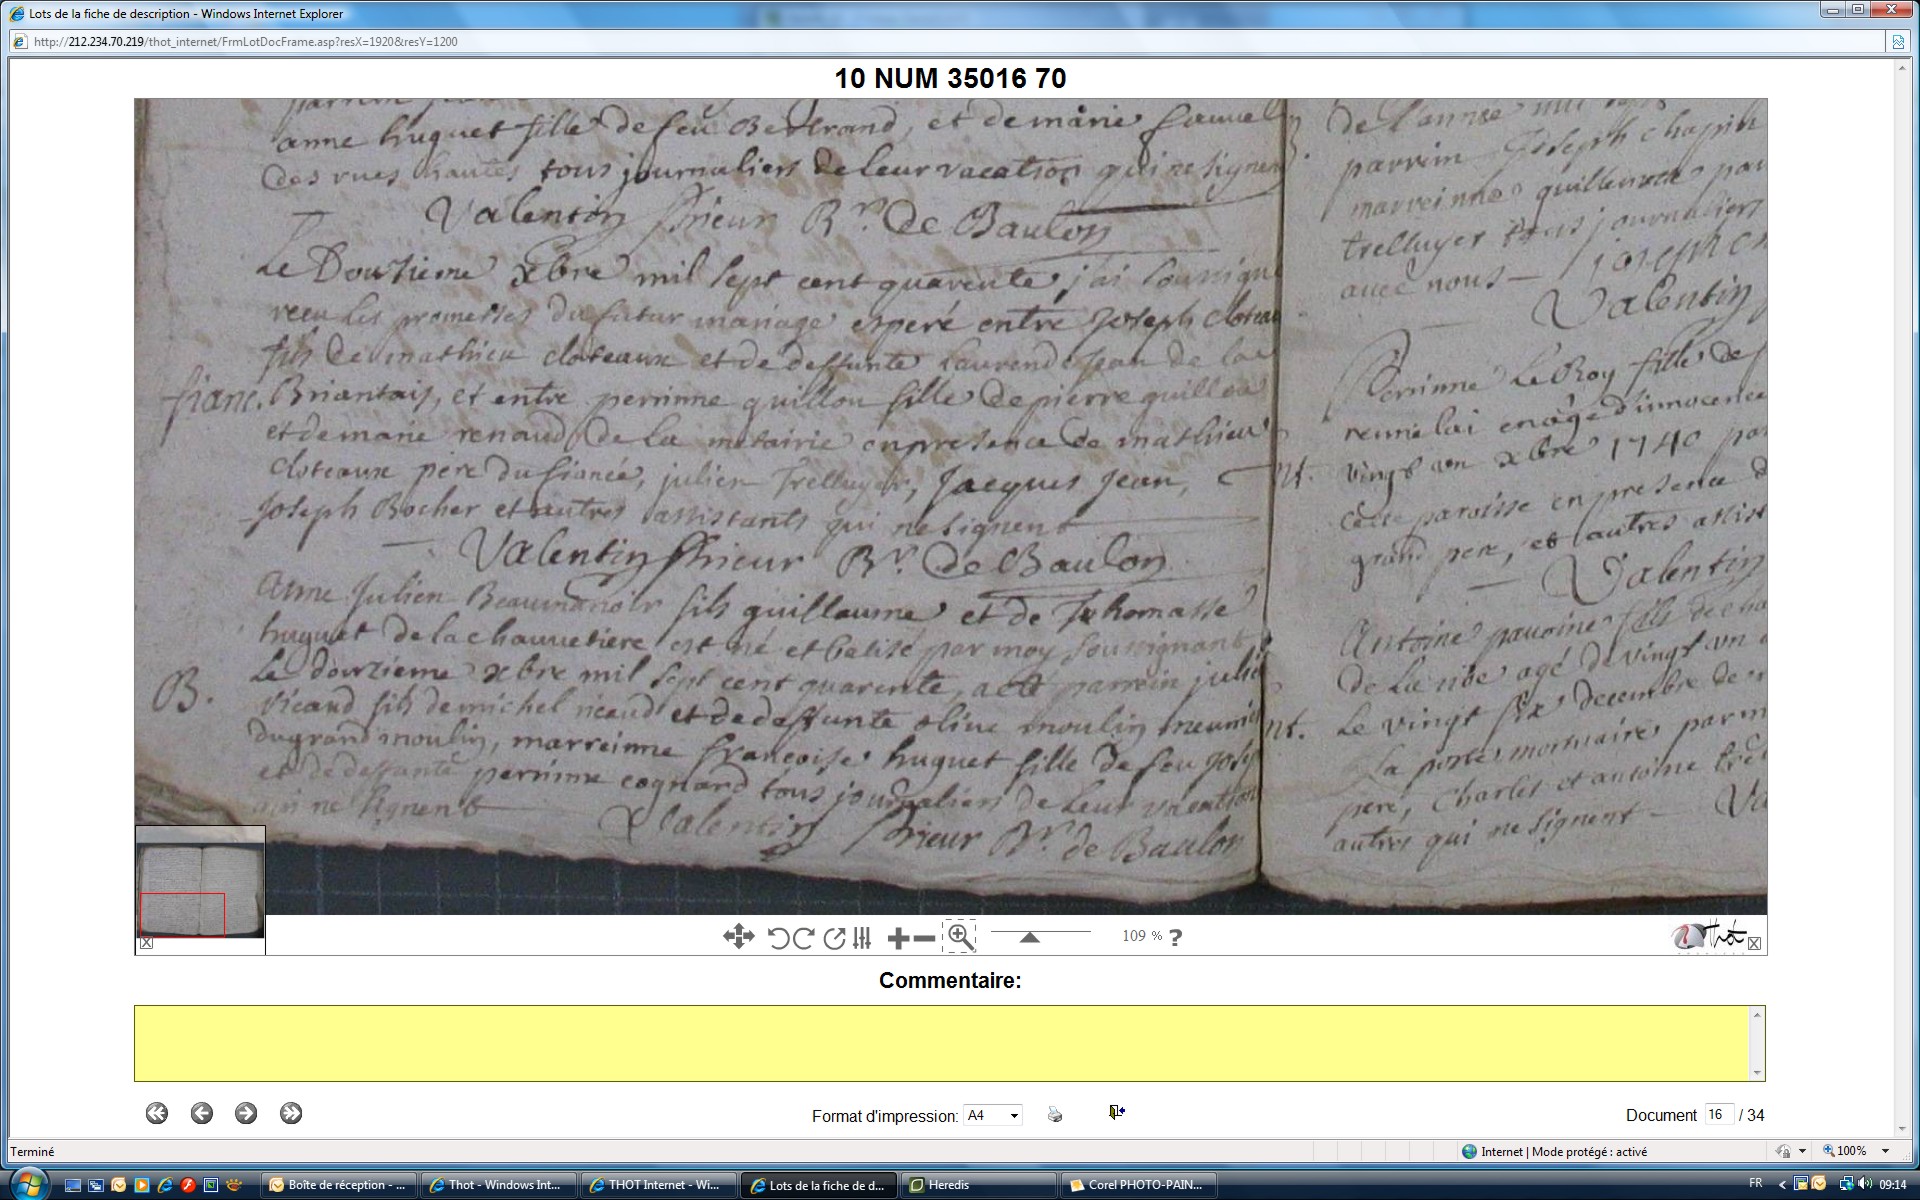 Lots de la fiche de description - Windows Internet Explorer
http://212.234.70.219/thot_internet/FrmLotDocFrame.asp?resX=1920&resY=1200
10 NUM 35016 70
anne huguet fille de feu Bertrand, et de marie
des rues hautes tous journaliers de leur vacation qui ne signent
Valentin Prieur Rr. de Baulon
Le Douzieme xbre mil sept cent quarente, j'ai soussigné
receu les promesses du futur mariage esperé entre Joseph cloteau
fils de mathieu cloteaux et de deffunte Laurence Jean de la
fianc. Briantais, et entre perrinne guillou fille de pierre guillou
et de marie renaud de la metairie en presence de mathieu
cloteaux pere du fiancé, julien Trelluyer, Jacques Jean,
Joseph Bocher et autres assistants qui ne signent
Valentin Prieur Rr. de Baulon
Julien Beaumanoir fils guillaume et de Thomasse
huguet de la chauvetiere est né et batisé par moy soussignant
B. Le douzieme xbre mil sept cent quarente, a été parrein julien
ricaud fils de michel ricaud et de deffunte olive moulin meunier
du grand moulin, marreinne francoise huguet fille de feu Josep
et de deffunte perrinne cognard tous journaliers de leur vacation
qui ne signent
Valentin Prieur Rr. de Baulon
de l'année mil sept
parrein Joseph chapin
marreinne guillemette par
trelluyer tous journaliers
avec nous joseph c
Valentin
Perrinne Le Roy fille de
en age d'innocence
vingt un xbre 1740
cette paroisse en presence d
grand pere, et autres assist
Valentin
Antoine pavoine fils de cha
agé de vingt un
nt. Le vingt six decembre de
La porte mortuaire par m
pere, Charles et antoine
autres qui ne signent Va
109 % ?
Thot
Commentaire:
Format d'impression: A4
Document 16 / 34
Terminé
Internet | Mode protégé : activé
100%
Boîte de réception - ...
Thot - Windows Int...
THOT Internet - Wi...
Lots de la fiche de d...
Heredis
Corel PHOTO-PAIN...
FR
09:14